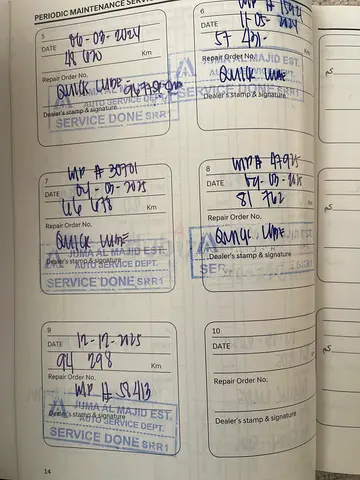 PERIODIC MAINTENANCE SERVI
5
DATE 06-03-2024
48 020 Km
Repair Order No.
QUICK LUBE
Dealer's stamp & signature
AUTO SERVICE DEPT.
SERVICE DONE SRR1
6
DATE 11-05-2024
57 431- Km
Repair Order No.
QUICK LUBE
JUMA AL MAJID EST.
AUTO SERVICE DEPT.
Dealer's stamp & signature
SERVICE DONE SRR1
7
WIP # 30701
DATE
66 678 Km
Repair Order No.
QUICK LUBE
JUMA AL MAJID EST.
Dealer's stamp & signature
AUTO SERVICE DEPT.
SERVICE DONE SRR1
8
WIP # 47925
DATE
81 762 Km
Repair Order No.
QUICK LUBE
Dealer's stamp & signature
9
DATE 12-12-2025
94 298 Km
Repair Order No.
WIP # 58413
JUMA AL MAJID EST.
Dealer's stamp & signature
AUTO SERVICE DEPT.
SERVICE DONE SRR1
10
DATE
Km
Repair Order No.
Dealer's stamp & signature
كم
كم
كم
14